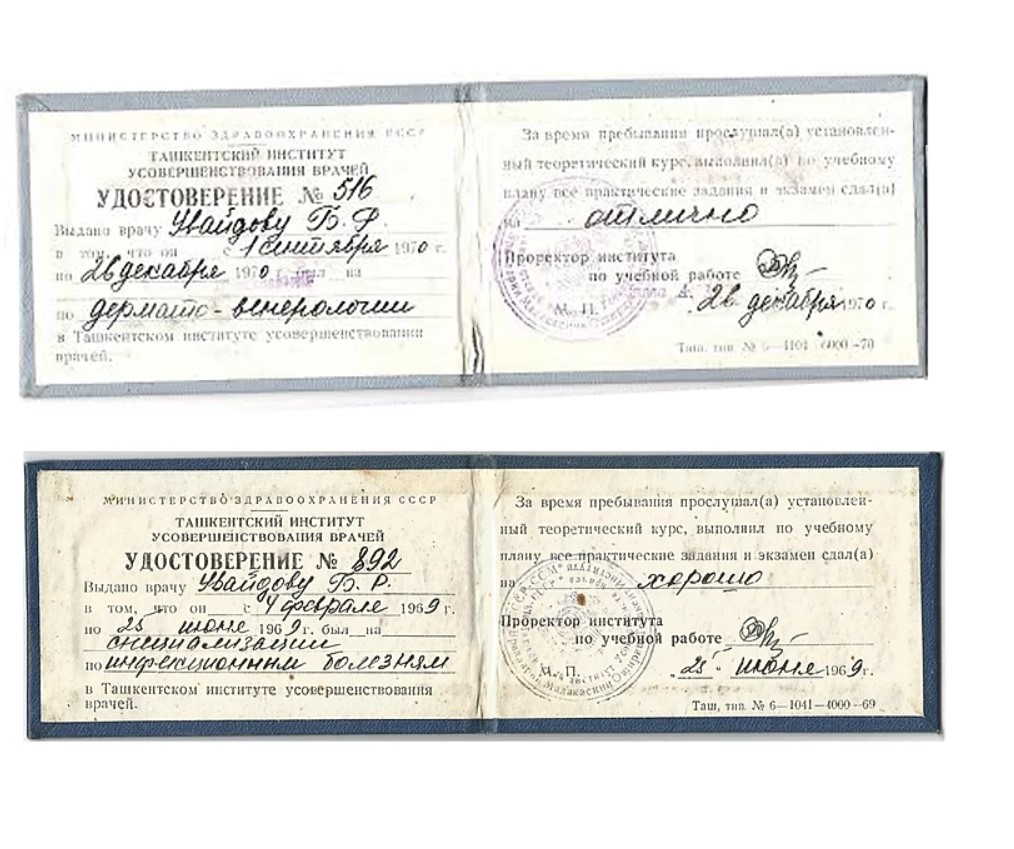 МИНИСТЕРСТВО ЗДРАВООХРАНЕНИЯ СССР
ТАШКЕНТСКИЙ ИНСТИТУТ
УСОВЕРШЕНСТВОВАНИЯ ВРАЧЕЙ
УДОСТОВЕРЕНИЕ № 516
Выдано врачу Увайдову Б. Р.
в том, что он с 1 сентября 1970 г.
по 26 декабря 1970 г. был на
по дермато-венерологии
в Ташкентском институте усовершенствования
врачей.
За время пребывания прослушал(а) установлен-
ный теоретический курс, выполнил(а) по учебному
плану все практические задания и экзамен сдал(а)
на отлично
Проректор института
по учебной работе
М. П.
26 декабря 1970 г.
Таш. тип. № 6—1101—6000—70
МИНИСТЕРСТВО ЗДРАВООХРАНЕНИЯ СССР
ТАШКЕНТСКИЙ ИНСТИТУТ
УСОВЕРШЕНСТВОВАНИЯ ВРАЧЕЙ
УДОСТОВЕРЕНИЕ № 892
Выдано врачу Увайдову Б. Р.
в том, что он с 4 феврале 1969 г.
по 25 июне 1969 г. был на
специализации
по инфекционным болезням
в Ташкентском институте усовершенствования
врачей.
За время пребывания прослушал(а) установлен-
ный теоретический курс, выполнил по учебному
плану все практические задания и экзамен сдал(а)
на хорошо
Проректор института
по учебной работе
М. П.
„25" июне 1969 г.
Таш. тип. № 6—1041—4000—69